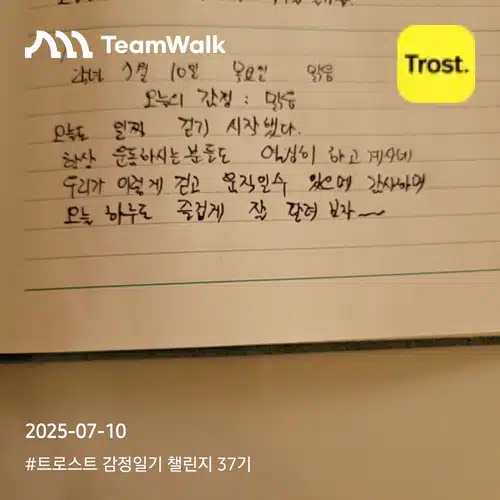 TeamWalk
Trost.
7월 10일 목요일 맑음
오늘의 감정 : 맑음
오늘도 일찍 걷기 시작했다.
항상 운동하시는분들도 열심히 하고 계시네
우리가 이렇게 걷고 움직일수 있음에 감사하며
오늘 하루도 즐겁게 잘 달려 보자~
2025-07-10
#트로스트 감정일기 챌린지 37기